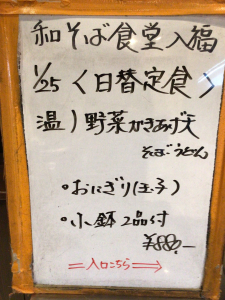 和そば食堂入福
1/25〈日替定食〉
温)野菜かきあげ天
そば・うどん
・おにぎり(玉子)
・小鉢2品付
¥880.-
⇒入口こちら⇒